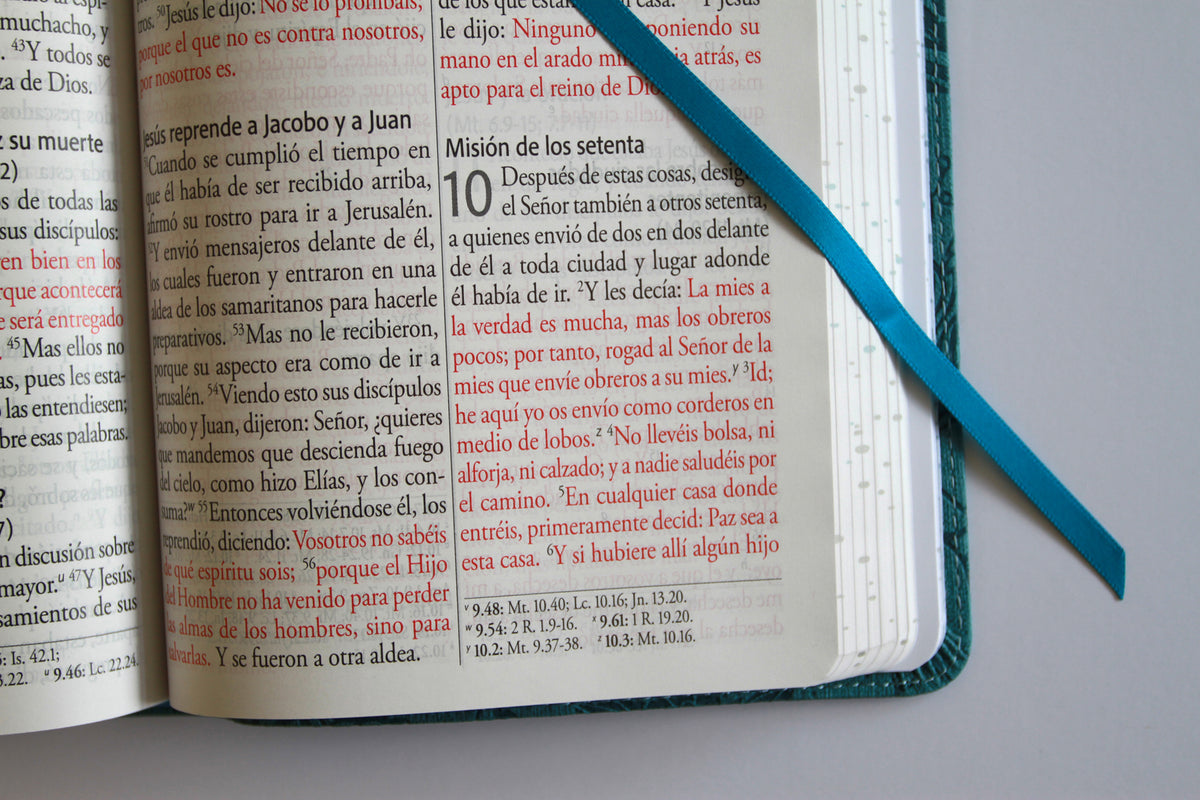 muchacho, y
43Y todos se
za de Dios.
su muerte
2)
s de todas las
sus discípulos:
ren bien en los
rque acontecerá
e será entregado
45Mas ellos no
as, pues les esta-
las entendiesen;
bre esas palabras.
?
7)
n discusión sobre
mayor.u 47Y Jesús,
samientos de sus
: Is. 42.1;
3.22. u 9.46: Lc. 22.24.
tros. 50Jesús le dijo: No se lo prohibáis,
porque el que no es contra nosotros,
por nosotros es.
Jesús reprende a Jacobo y a Juan
51Cuando se cumplió el tiempo en
que él había de ser recibido arriba,
afirmó su rostro para ir a Jerusalén.
52Y envió mensajeros delante de él,
los cuales fueron y entraron en una
aldea de los samaritanos para hacerle
preparativos. 53Mas no le recibieron,
porque su aspecto era como de ir a
Jerusalén. 54Viendo esto sus discípulos
Jacobo y Juan, dijeron: Señor, ¿quieres
que mandemos que descienda fuego
del cielo, como hizo Elías, y los con-
suma?w 55Entonces volviéndose él, los
reprendió, diciendo: Vosotros no sabéis
de qué espíritu sois; 56porque el Hijo
del Hombre no ha venido para perder
las almas de los hombres, sino para
salvarlas. Y se fueron a otra aldea.
de los que están casa. Y Jesús
le dijo: Ninguno poniendo su
mano en el arado mi a atrás, es
apto para el reino de Dio
Misión de los setenta
10 Después de estas cosas, desig
el Señor también a otros setenta,
a quienes envió de dos en dos delante
de él a toda ciudad y lugar adonde
él había de ir. 2Y les decía: La mies a
la verdad es mucha, mas los obreros
pocos; por tanto, rogad al Señor de la
mies que envíe obreros a su mies.y 3Id;
he aquí yo os envío como corderos en
medio de lobos.z 4No llevéis bolsa, ni
alforja, ni calzado; y a nadie saludéis por
el camino. 5En cualquier casa donde
entréis, primeramente decid: Paz sea a
esta casa. 6Y si hubiere allí algún hijo
v 9.48: Mt. 10.40; Lc. 10.16; Jn. 13.20.
w 9.54: 2 R. 1.9-16. x 9.61: 1 R. 19.20.
y 10.2: Mt. 9.37-38. z 10.3: Mt. 10.16.